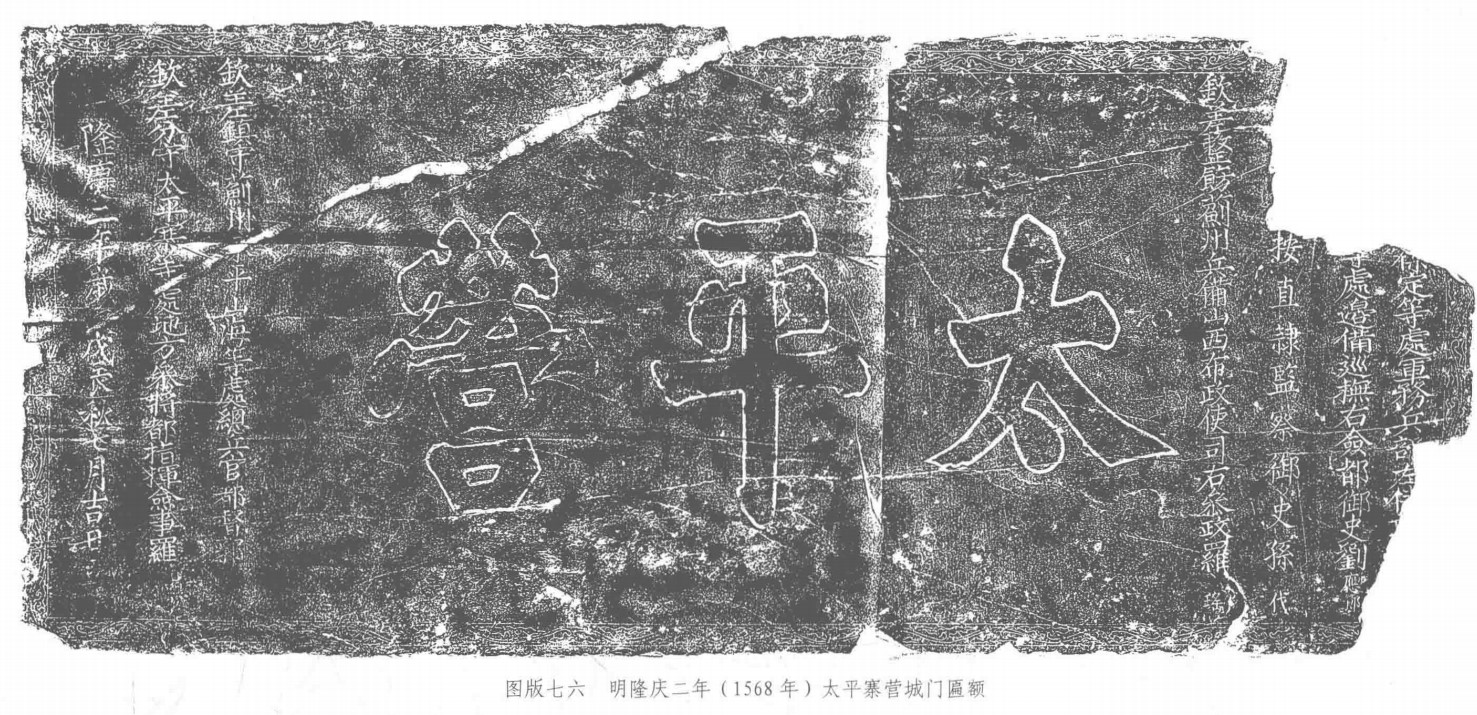 定等處軍務兵部左侍
處邊備巡撫右僉都御史劉應節
按直隸監察御史孫代
欽差整飭薊州兵備山西布政使司右叅政羅瑤
太平營
欽差鎮守薊州平山海等處總兵官都督郭
欽差分守太平寨等處地方叅將都指揮僉事羅
隆慶二年歲戊辰秋七月吉日
图版七六 明隆庆二年（1568年）太平寨营城门匾额